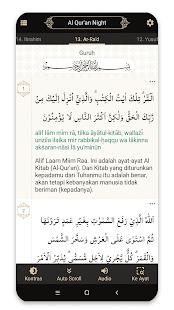 Al Qur'an Night
14. Ibrahim
13. Ar-Ra'd
12. Yusuf
Guruh
بِسْمِ اللّٰهِ الرَّحْمٰنِ الرَّحِيْمِ
1
الۤمّۤرٰۗ تِلْكَ اٰيٰتُ الْكِتٰبِۗ وَالَّذِيْٓ اُنْزِلَ اِلَيْكَ مِنْ
رَّبِّكَ الْحَقُّ وَلٰكِنَّ اَكْثَرَ النَّاسِ لَا يُؤْمِنُوْنَ
alif lām mīm rā, tilka āyātul-kitāb, wallażī
unzila ilaika mir rabbikal-ḥaqqu wa lākinna
akṡaran-nāsi lā yu'minūn
Alif Laam Miim Raa. Ini adalah ayat-ayat Al
Kitab (Al-Qur'an). Dan Kitab yang diturunkan
kepadamu dari Tuhanmu itu adalah benar,
akan tetapi kebanyakan manusia tidak
beriman (kepadanya).
2
اَللّٰهُ الَّذِيْ رَفَعَ السَّمٰوٰتِ بِغَيْرِ عَمَدٍ تَرَوْنَهَا
ثُمَّ اسْتَوٰى عَلَى الْعَرْشِ وَسَخَّرَ الشَّمْسَ
وَالْقَمَرَۗ كُلٌّ يَّجْرِيْ لِاَجَلٍ مُّسَمًّىۗ يُدَبِّرُ الْاَمْرَ
Kontras
Auto Scroll
Audio
Ke Ayat